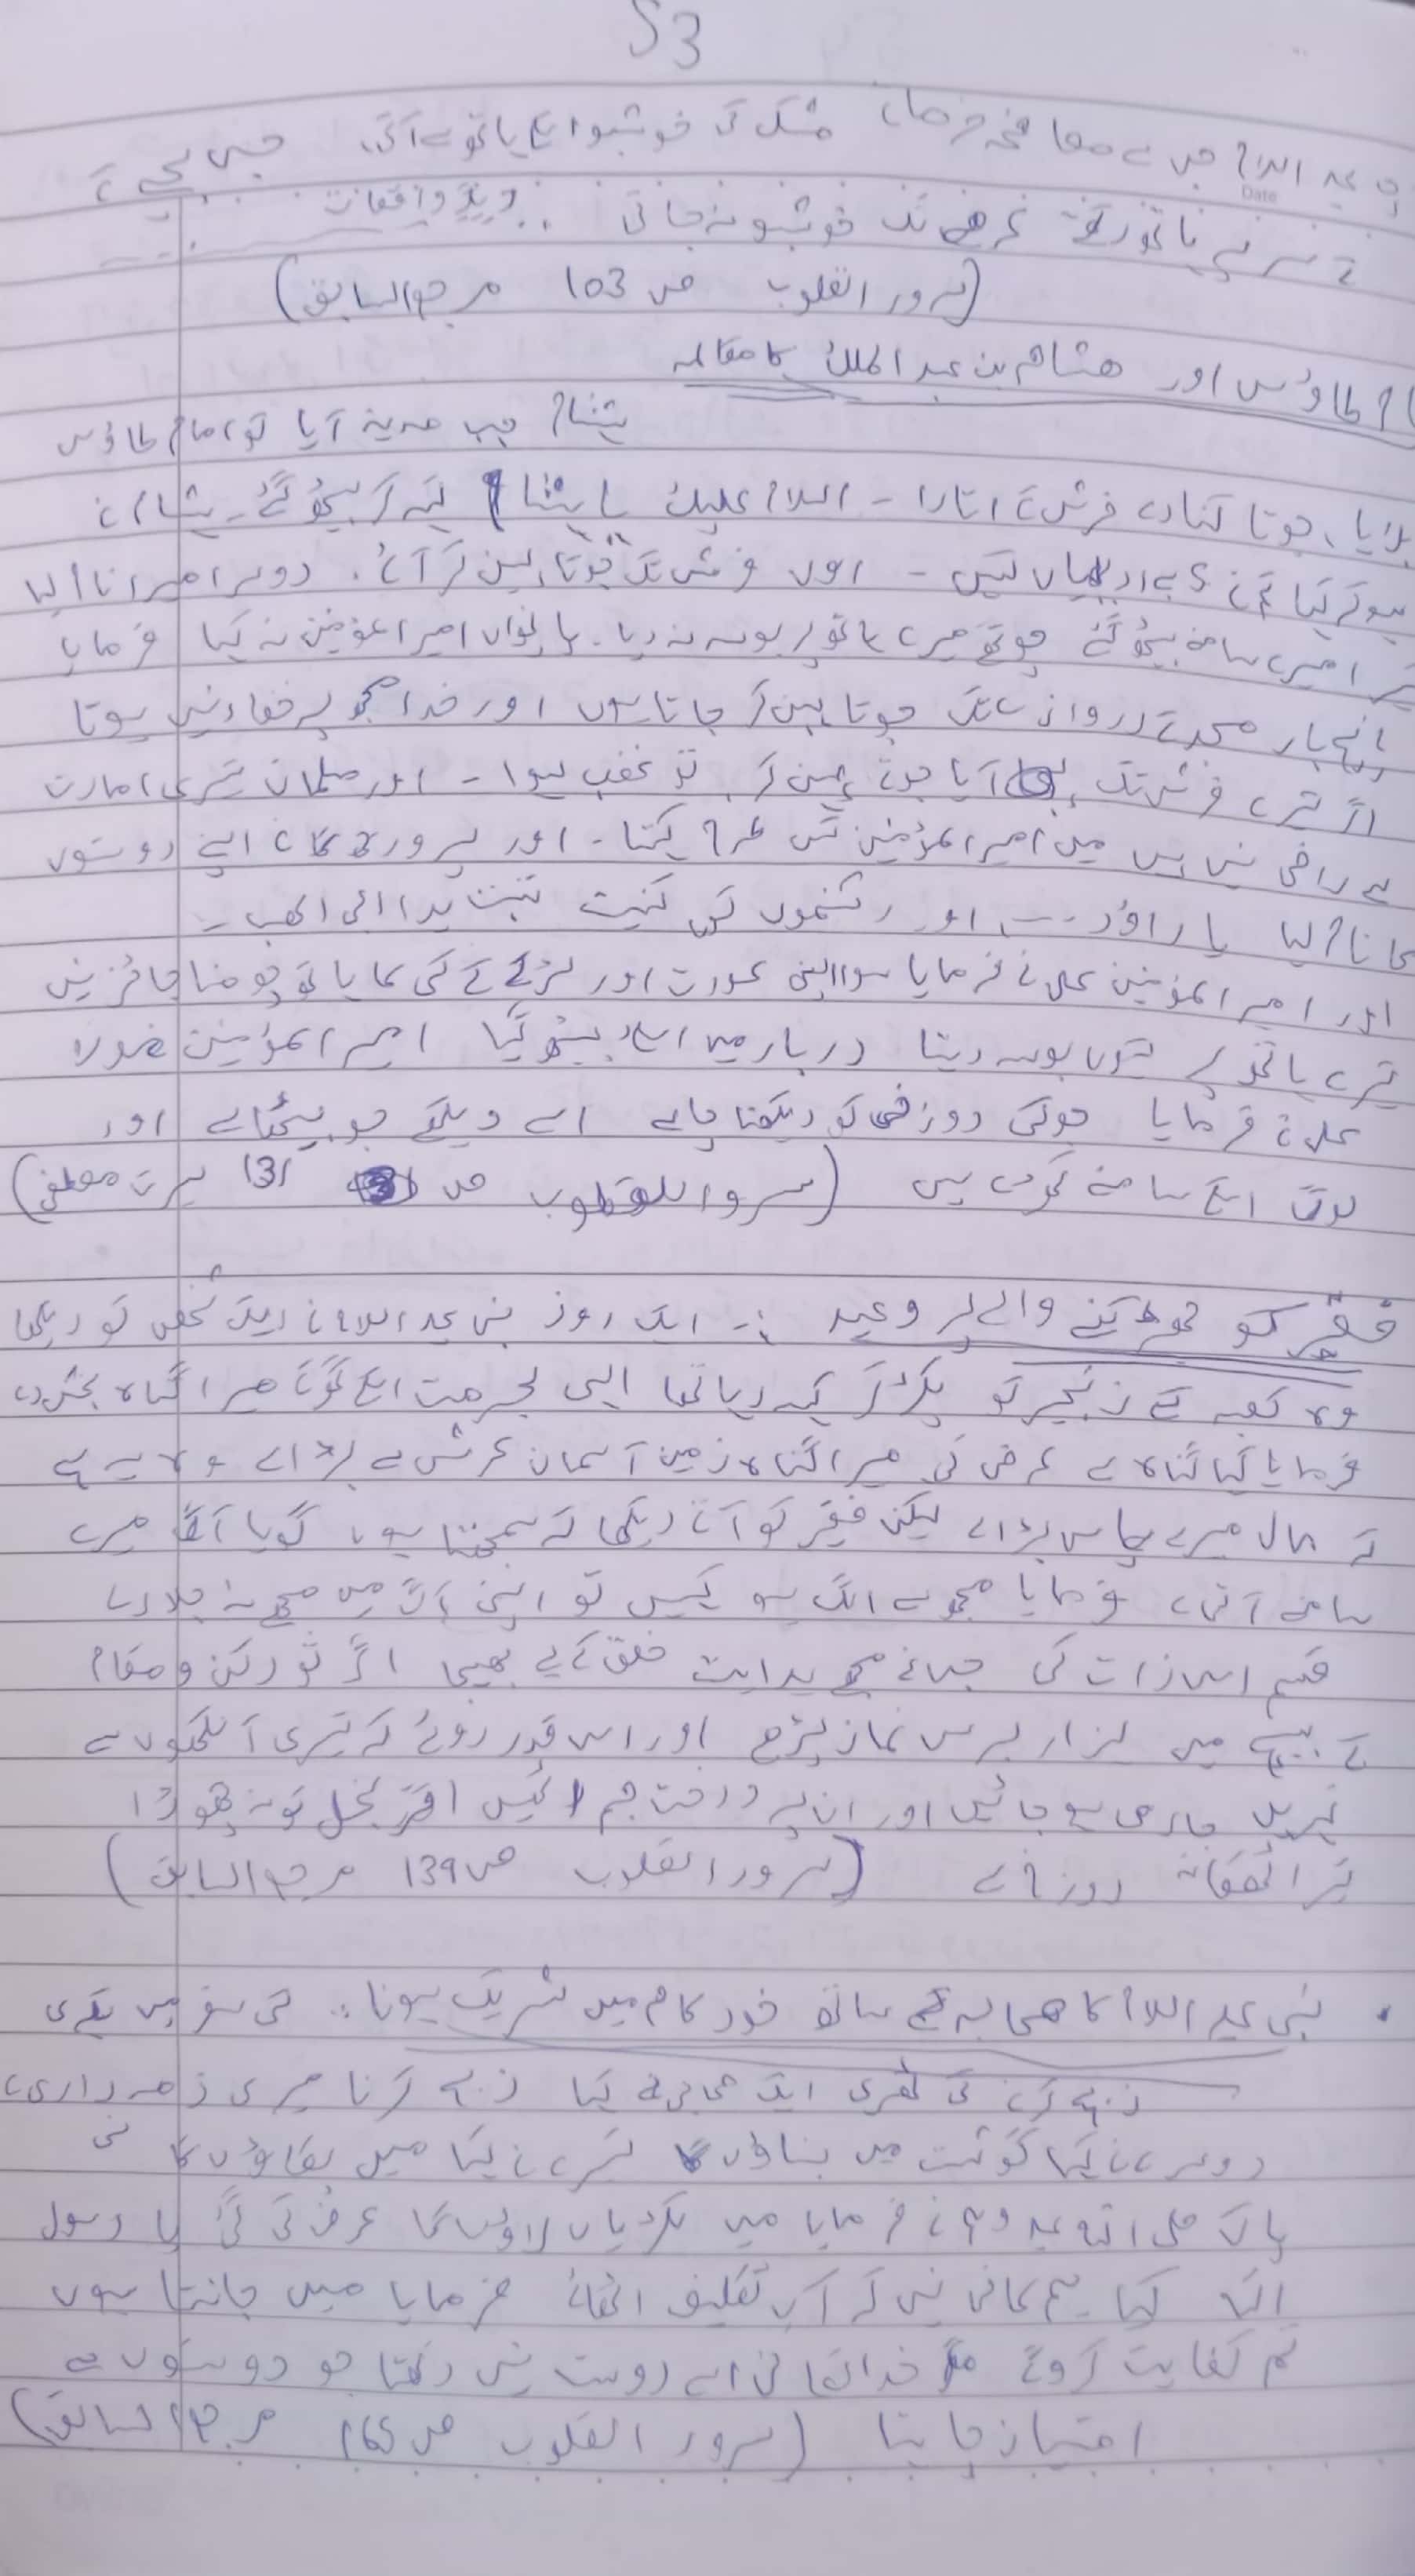 53
علیہ السلام جس سے مصافحہ فرماتے مشک کی خوشبو اسکے ہاتھ سے آتی، جس بچے کے
سر پر ہاتھ رکھتے عرصے تک خوشبو نہ جاتی .. دیگر واقعات
(سرور القلوب ص 103 مرجع السابق)
طاؤس اور ھشام بن عبد الملک کا مقالمہ
ہشام جب مدینہ آیا تو امام طاؤس
بلایا، جوتا کنارے فرش کے اتارا - السلام علیک یا ہشام کہہ کر بیٹھ گئے۔ ہشام نے
ہو کر کہا تم نے بے ادبیاں کیں - اول فرش تک جوتا پہن کر آئے، دوسرا میرا نام لیا
میرے سامنے بیٹھ گئے چوتھے میرے ہاتھ پر بوسہ نہ دیا۔ پانچواں امیر المؤمنین نہ کہا فرمایا
پانچ بار مسجد کے دروازے تک جوتا پہن کر جاتا ہوں اور خدا مجھ پر خفا نہیں ہوتا
اگر تیرے فرش تک آیا جوتے پہن کر تو غضب ہوا - اور مسلمان تیری امارت
سے راضی نہیں ہیں میں امیر المؤمنین کس طرح کہتا۔ اور پروردگار نے اپنے دوستوں
کا نام لیا یا داؤد ... اور دشمنوں کی کنیت تبت یدا ابی لھب -
اور امیر المؤمنین علی نے فرمایا سوا اپنی عورت اور لڑکے کے کسی کا ہاتھ چومنا جائز نہیں
تیرے ہاتھ پر کیوں بوسہ دیتا دربار میں اسلئے بیٹھ گیا امیر المؤمنین مولا
علی نے فرمایا جو کسی دوزخی کو دیکھنا چاہے اسے دیکھے جو بیٹھا ہے اور
لوگ اسکے سامنے کھڑے ہیں (سرور القلوب ص 131 سیرت مصطفی)
فقیر کو جھڑکنے والے پر وعید :- ایک روز نبی علیہ السلام نے ایک شخص کو دیکھا
وہ کعبہ کے زنجیر کو پکڑ کر کہہ رہا تھا الہی بحرمت اس گھر کے میرا گناہ بخش دے
فرمایا کیا گناہ ہے عرض کی میرا گناہ زمین آسمان عرش سے بڑا ہے وہ یہ ہے
کہ مال میرے پاس بڑا ہے لیکن فقیر کو آتے دیکھا کہ سمجھتا ہوں گویا آگ میرے
سامنے آتی ہے فرمایا مجھ سے الگ ہو کہیں تو اپنی آگ میں مجھے نہ جلا دے
قسم اس ذات کی جس نے مجھے ہدایت خلق کے لیے بھیجا اگر تو رکن و مقام
کے بیچ میں ہزار برس نماز پڑھے اور اس قدر روئے کہ تیری آنکھوں سے
نہریں جاری ہو جائیں اور ان پر درخت جم اگیں اگر بخل تو نہ چھوڑا
تیرا ٹھکانہ دوزخ ہے (سرور القلوب ص 139 مرجع السابق)
• نبی علیہ السلام کا صحابہ کے ساتھ خود کام میں شریک ہونا :- کسی سفر میں بکری
ذبح کرنے کی ٹھہری ایک صحابی نے کہا ذبح کرنا میری ذمہ داری ہے
دوسرے نے کہا گوشت میں بناؤں گا تیسرے نے کہا میں پکاؤں گا نبی
پاک صلی اللہ علیہ وسلم نے فرمایا میں لکڑیاں لاؤں گا عرض کی گئی یا رسول
اللہ کیا ہم کافی نہیں کہ آپ تکلیف اٹھائے فرمایا میں جانتا ہوں
تم کفایت کرو گے مگر خدا تعالی اسے دوست نہیں رکھتا جو دوستوں سے
امتیاز چاہتا (سرور القلوب ص 165 مرجع السابق)